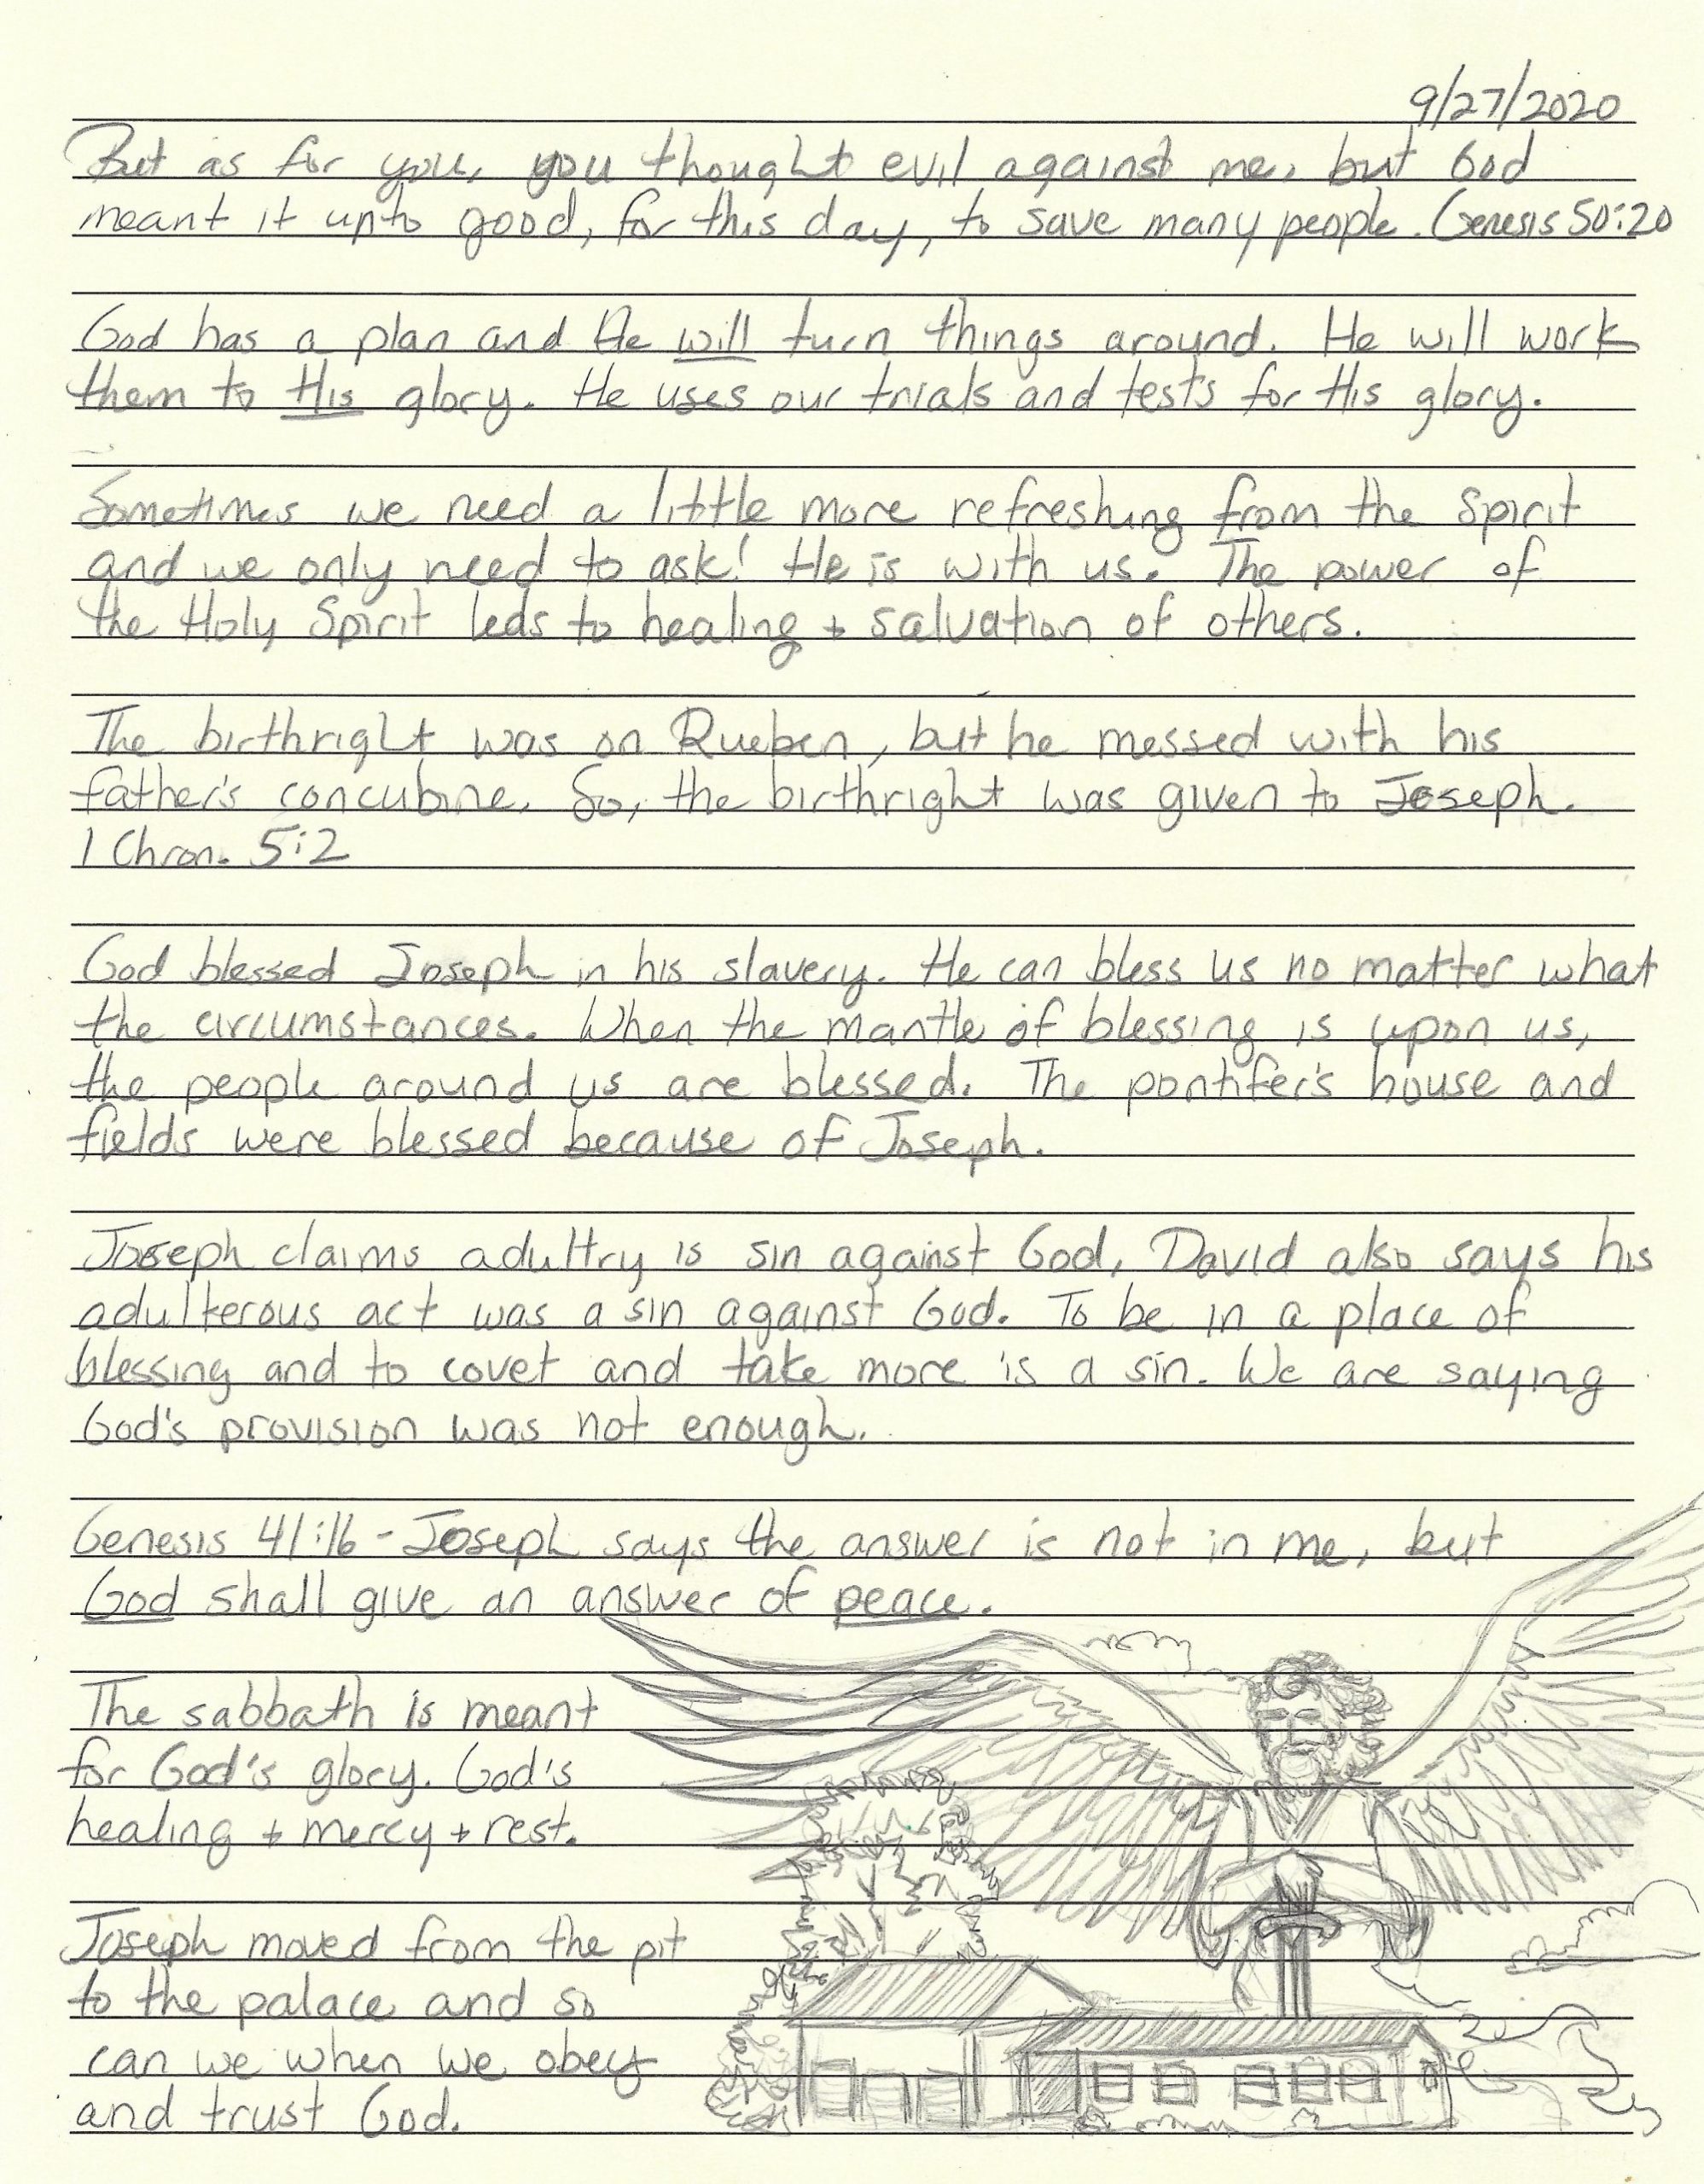 9/27/2020
But as for you, you thought evil against me, but God
meant it unto good, for this day, to save many people. Genesis 50:20
God has a plan and He will turn things around. He will work
them to His glory. He uses our trials and tests for His glory.
Sometimes we need a little more refreshing from the Spirit
and we only need to ask! He is with us. The power of
the Holy Spirit leds to healing + salvation of others.
The birthright was on Rueben, but he messed with his
father's concubine. So, the birthright was given to Joseph.
1 Chron. 5:2
God blessed Joseph in his slavery. He can bless us no matter what
the circumstances. When the mantle of blessing is upon us,
the people around us are blessed. The pontifer's house and
fields were blessed because of Joseph.
Joseph claims adultry is sin against God, David also says his
adulterous act was a sin against God. To be in a place of
blessing and to covet and take more is a sin. We are saying
God's provision was not enough.
Genesis 41:16 - Joseph says the answer is not in me, but
God shall give an answer of peace.
The sabbath is meant
for God's glory. God's
healing + mercy + rest.
Joseph moved from the pit
to the palace and so
can we when we obey
and trust God.